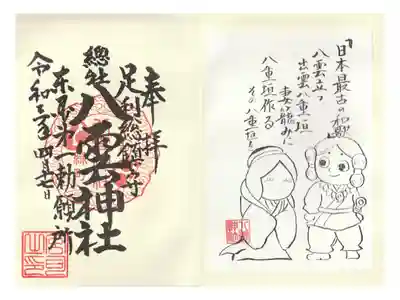 「日本最古の和歌」
八雲立つ
出雲八重垣
妻籠みに
八重垣作る
その八重垣を
奉拝
足利総鎮守
總社
八雲神社
東日本一勅願所
令和